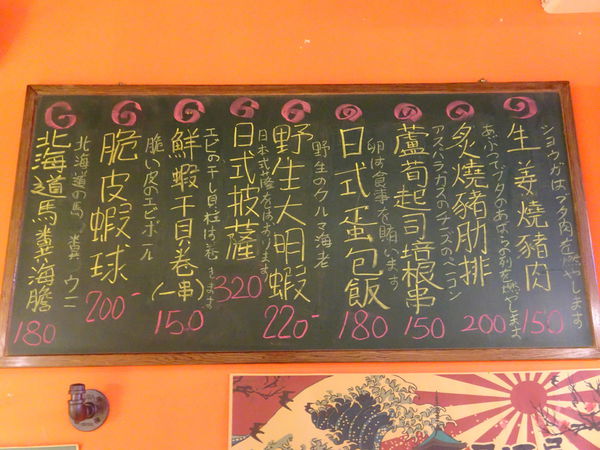 生姜燒豬肉
ショウガはブタ肉を燃やします
150
炙燒豬肋排
あぶってブタのあばら列を燃やします
200
蘆筍起司培根串
アスパラガスのチーズのベーコン
150
日式蛋包飯
卵は食事を賄います
180
野生大明蝦
野生のクルマ海老
220-
日式披薩
320
鮮蝦干貝卷(一串)
エビの干し貝柱は巻きます
150
脆皮蝦球
脆い皮のエビボール
200-
北海道馬糞海膽
北海道の馬糞ウニ
180